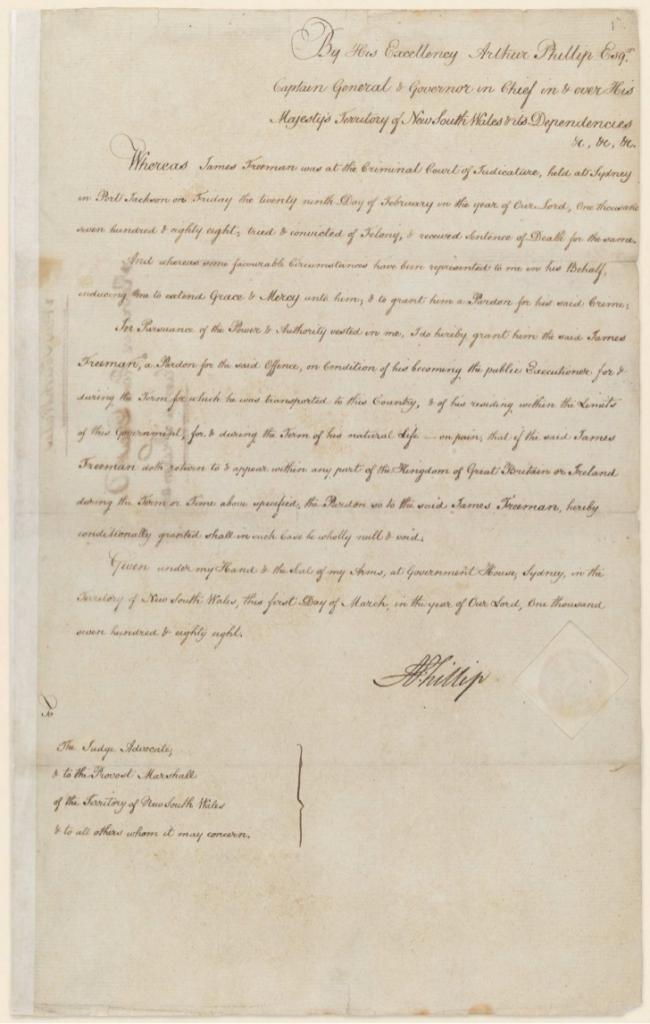 By His Excellency Arthur Phillip Esqr.
Captain General & Governor in Chief in & over His
Majesty's Territory of New South Wales & its Dependencies
&c, &c, &c.
Whereas James Freeman was at the Criminal Court of Judicature, held at Sydney
in Port Jackson on Friday the twenty ninth Day of February in the year of Our Lord, One thousand
seven hundred & eighty eight; tried & convicted of Felony, & received Sentence of Death for the same.
And whereas some favourable Circumstances have been represented to me in his Behalf,
inducing me to extend Grace & Mercy unto him; & to grant him a Pardon for his said Crime;
In Pursuance of the Power & Authority vested in me, I do hereby grant him the said James
Freeman, a Pardon for the said Offence, on Condition of his becoming the public Executioner for &
during the Term for which he was transported to this Country, & of his residing within the Limits
of this Government, for & during the Term of his natural Life — on pain, that if the said James
Freeman doth return to & appear within any part of the Kingdom of Great Britain or Ireland
during the Term or Time above specified, the Pardon so to the said James Freeman, hereby
conditionally granted shall in such Case be wholly null & void.
Given under my Hand & the Seal of my Arms, at Government House, Sydney, in the
Territory of New South Wales, this first Day of March, in the year of Our Lord, One thousand
seven hundred & eighty eight.
A Phillip
To
The Judge Advocate,
& to the Provost Marshall
of the Territory of New South Wales
& to all others whom it may concern.